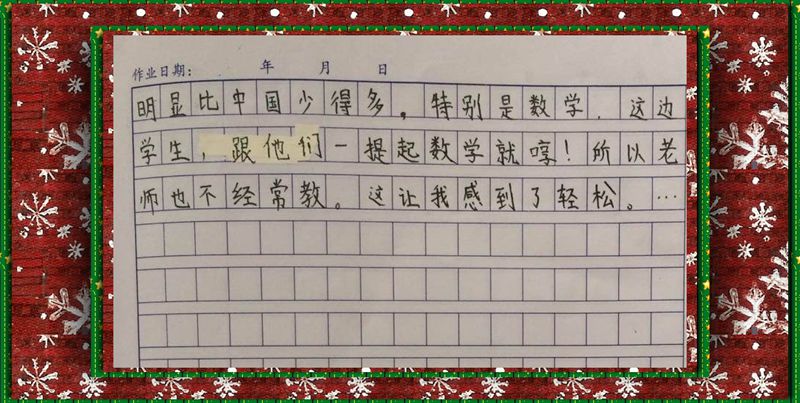 作业日期： 年 月 日
明显比中国少得多。特别是数学．这边
学生，跟他们一提起数学就哼！所以老
师也不经常教。这让我感到了轻松。…